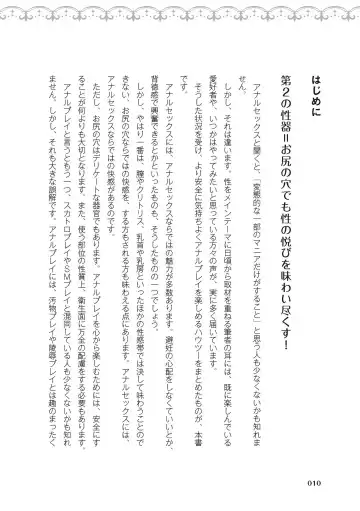 はじめに
第２の性器＝お尻の穴でも性の悦びを味わい尽くす！
アナルセックスと聞くと、「変態的な一部のマニアだけがすること」と思う人も少なくないかも知れま
せん。
しかし、それは違います。性をメインテーマに日頃から取材を重ねる筆者の耳には、既に楽しんでいる
愛好者や、いつかはやってみたいと思っている方々の声が、実に多く届いています。
そうした状況を受け、より安全に気持ちよくアナルプレイを楽しむハウツーをまとめたものが、本書
です。
アナルセックスには、アナルセックスならではの魅力が多数あります。避妊の心配をしなくていいとか、
背徳感で興奮できるとかといったものも、そうしたものの一つでしょう。
しかし、やはり一番は、膣やクリトリス、乳首や乳房といったほかの性感帯では決して味わうことので
きない、お尻の穴ならではの快感を、する方もされる方も味わえる点にあります。アナルセックスには、
アナルセックスならではの快感があるのです。
ただし、お尻の穴はデリケートな器官でもあります。アナルプレイを心から楽しむためには、安全にす
ることが何よりも大切となります。また、使う部位の性質上、衛生面に万全の配慮をする必要もあります。
アナルプレイと言うともう一つ、スカトロプレイやＳＭプレイと混同している人も少なくないかも知れ
ません。しかし、それも大きな誤解です。アナルプレイには、汚物プレイや陵辱プレイとは趣のまったく
010